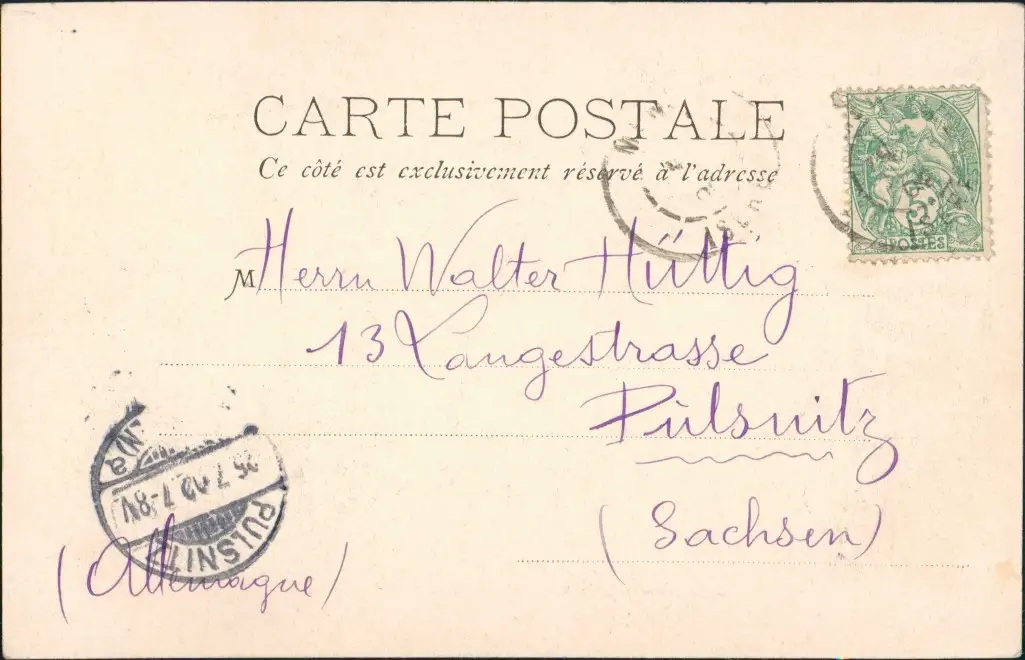 CARTE POSTALE
Ce côté est exclusivement réservé à l'adresse
M Herrn Walter Hüttig
13 Langestrasse
Pülsnitz
(Sachsen)
(Allemagne)
POSTES
5
ISERE
PULSNITZ
7-8V